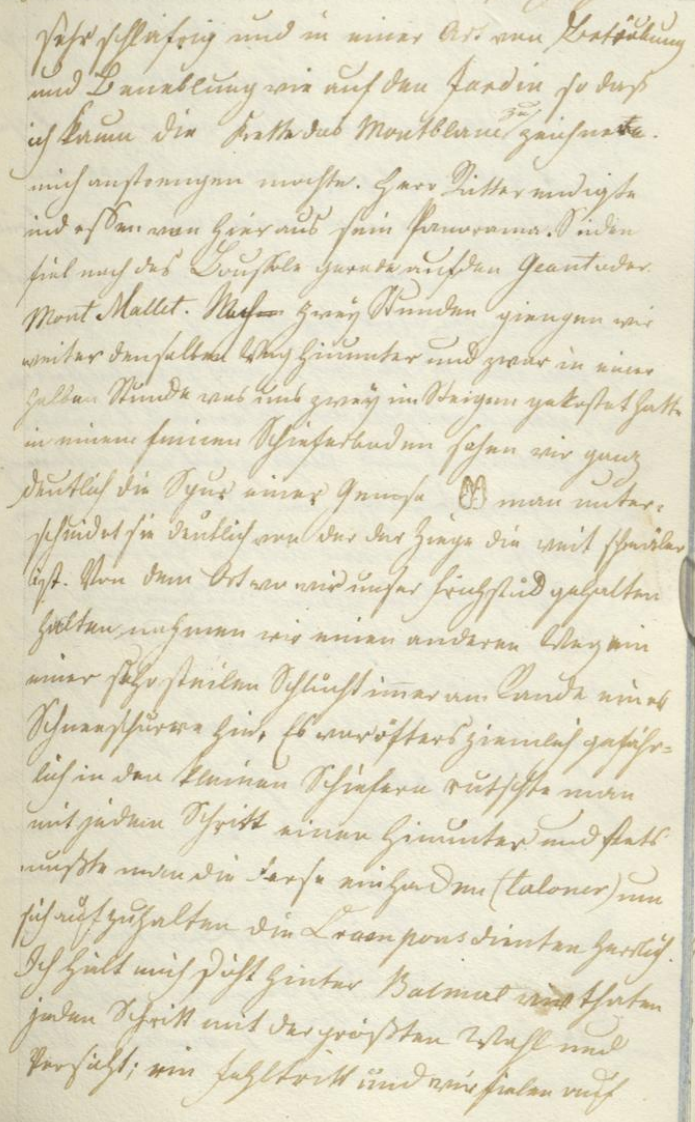 sehr schläfrig und in einer Art von Betäubung
und Beneblung wie auf den Jardin so daß
ich kaum die Kette des Montblanc zu zeichnen
mich anstrengen mochte. Herr Ritter endigte
indessen von hier aus sein Panorama. Süden
fiel nach der Boussole gerade auf den Geant oder
Mont Mallet. Nach zwey Stunden giengen wir
weiter denselben Weg hinunter und zwar in einer
halben Stunde was uns zwey im Steigen gekostet hatte
in einem feinen Schieferboden sahen wir ganz
deutlich die Spur einer Gemse man unter-
scheidet sie deutlich von der der Ziege die weit schmäler
ist. Von dem Ort wo wir unser Frühstück gehalten
hatten, nahmen wir einen anderen Weg in
einer sehr steilen Schlucht immer am Rande eines
hin. Es war öfters ziemlich gefähr-
lich in den kleinen Schiefern rutschte man
mit jedem Schritt einen hinunter und stets
mußte man die Ferse einhacken (taloner) um
sich aufzuhalten die Crampons dienten herrlich.
Ich hielt mich dicht hinter Balmat wir thaten
jeden Schritt mit der größten Wahl und
Vorsicht; ein Fehltritt und wir fielen auf